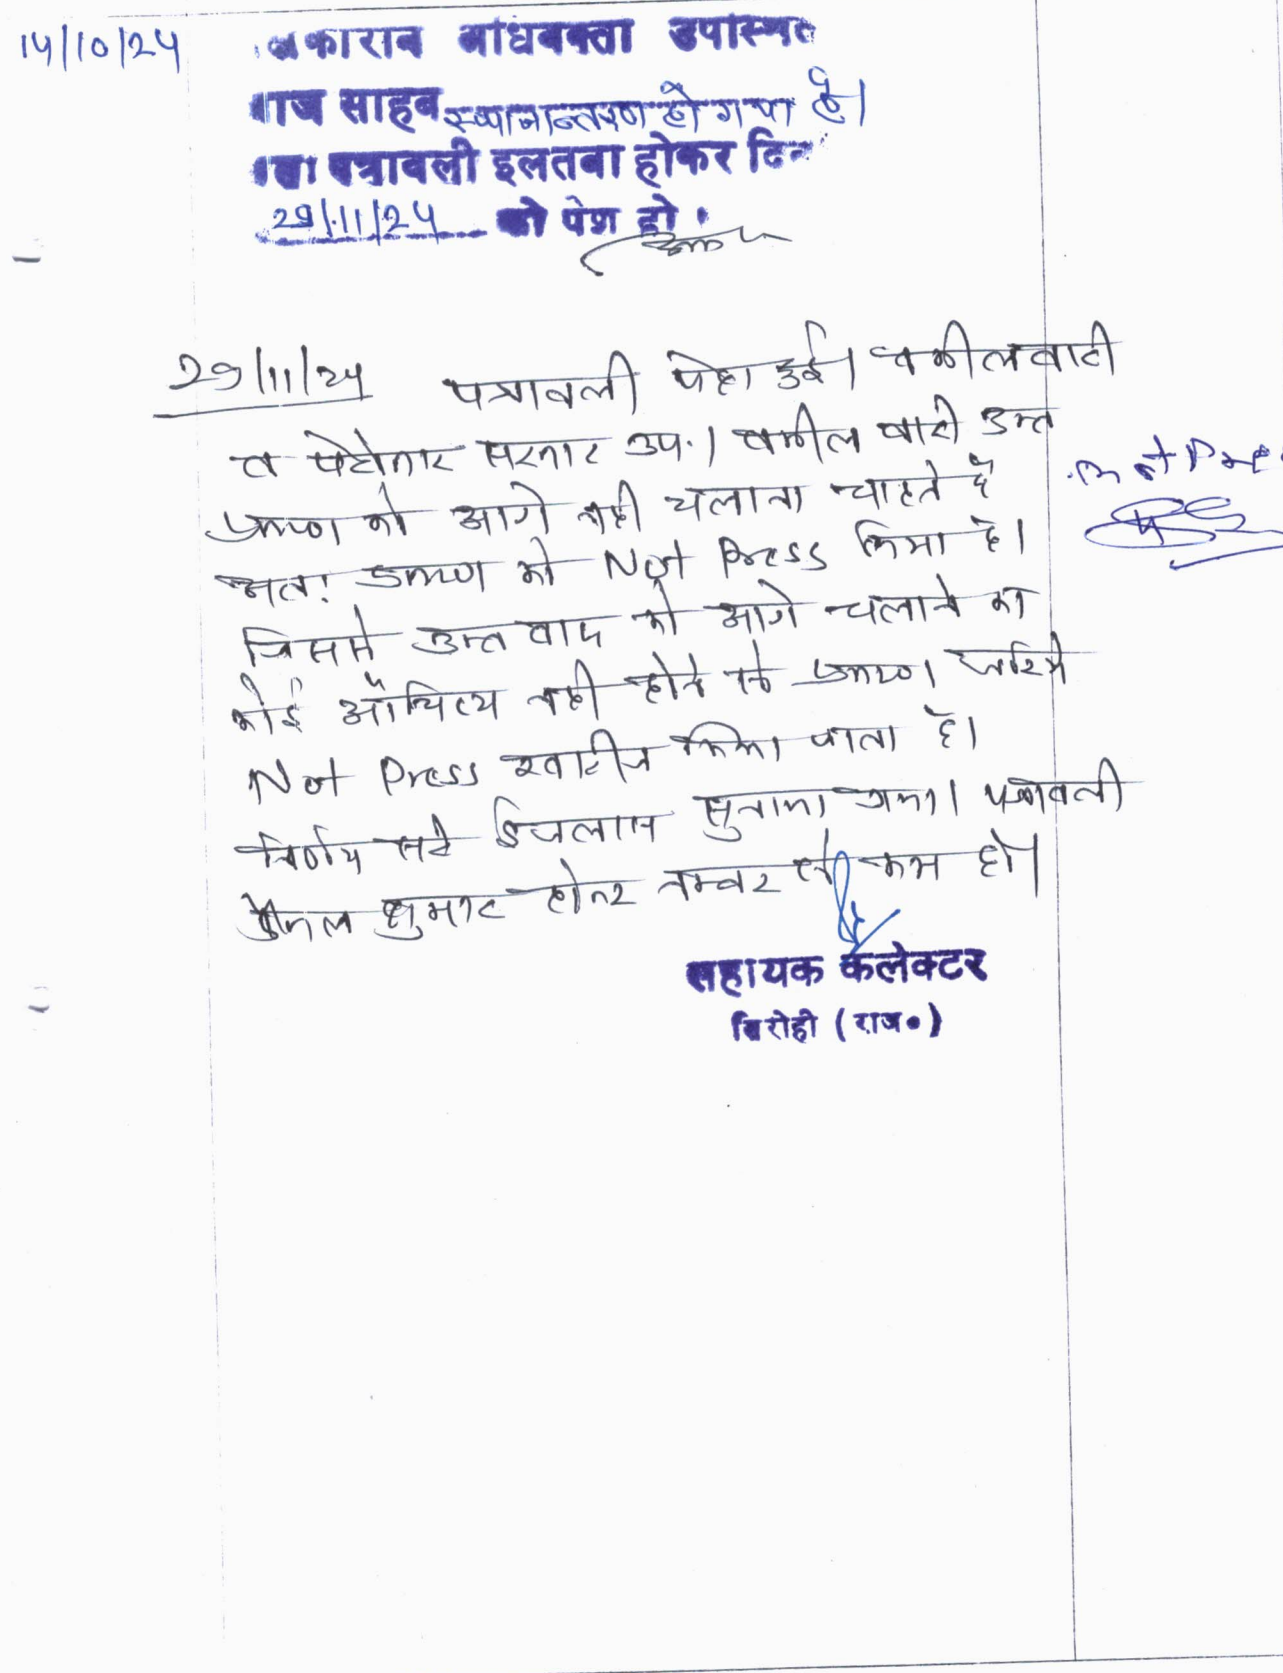 14/10/24
अधिवक्ता उपस्थित
आज साहब स्थानान्तरण हो गया है।
पत्रावली इलतवा होकर दिन
29/11/24 को पेश हो।
29/11/24 पत्रावली पेश हुई। वकील वादी
व पेरोकार सरकार उप.। वकील वादी उक्त
प्रकरण को आगे नही चलाना चाहते है
Not Pre
अत: प्रकरण को Not Press किया है।
जिसमे उक्त वाद को आगे चलाने का
कोई औचित्य नही होने से प्रकरण जरिये
Not Press खारीज किया जाता है।
निर्णय सरे इजलास सुनाया गया। पत्रावली
फैसल शुमार होकर नम्बर से कम हो।
सहायक कलेक्टर
सिरोही (राज०)